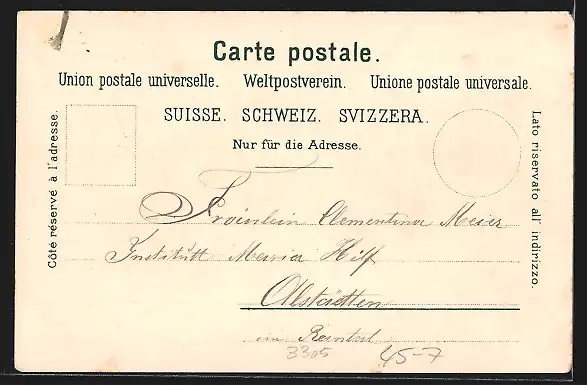 Carte postale.
Union postale universelle. Weltpostverein. Unione postale universale.
SUISSE. SCHWEIZ. SVIZZERA.
Nur für die Adresse.
Côté réservé à l'adresse.
Lato riservato all' indirizzo.
Fräulein Clementina Meier
Institutt Maria Hilf
Altstätten
im Reintal
3305 45-7